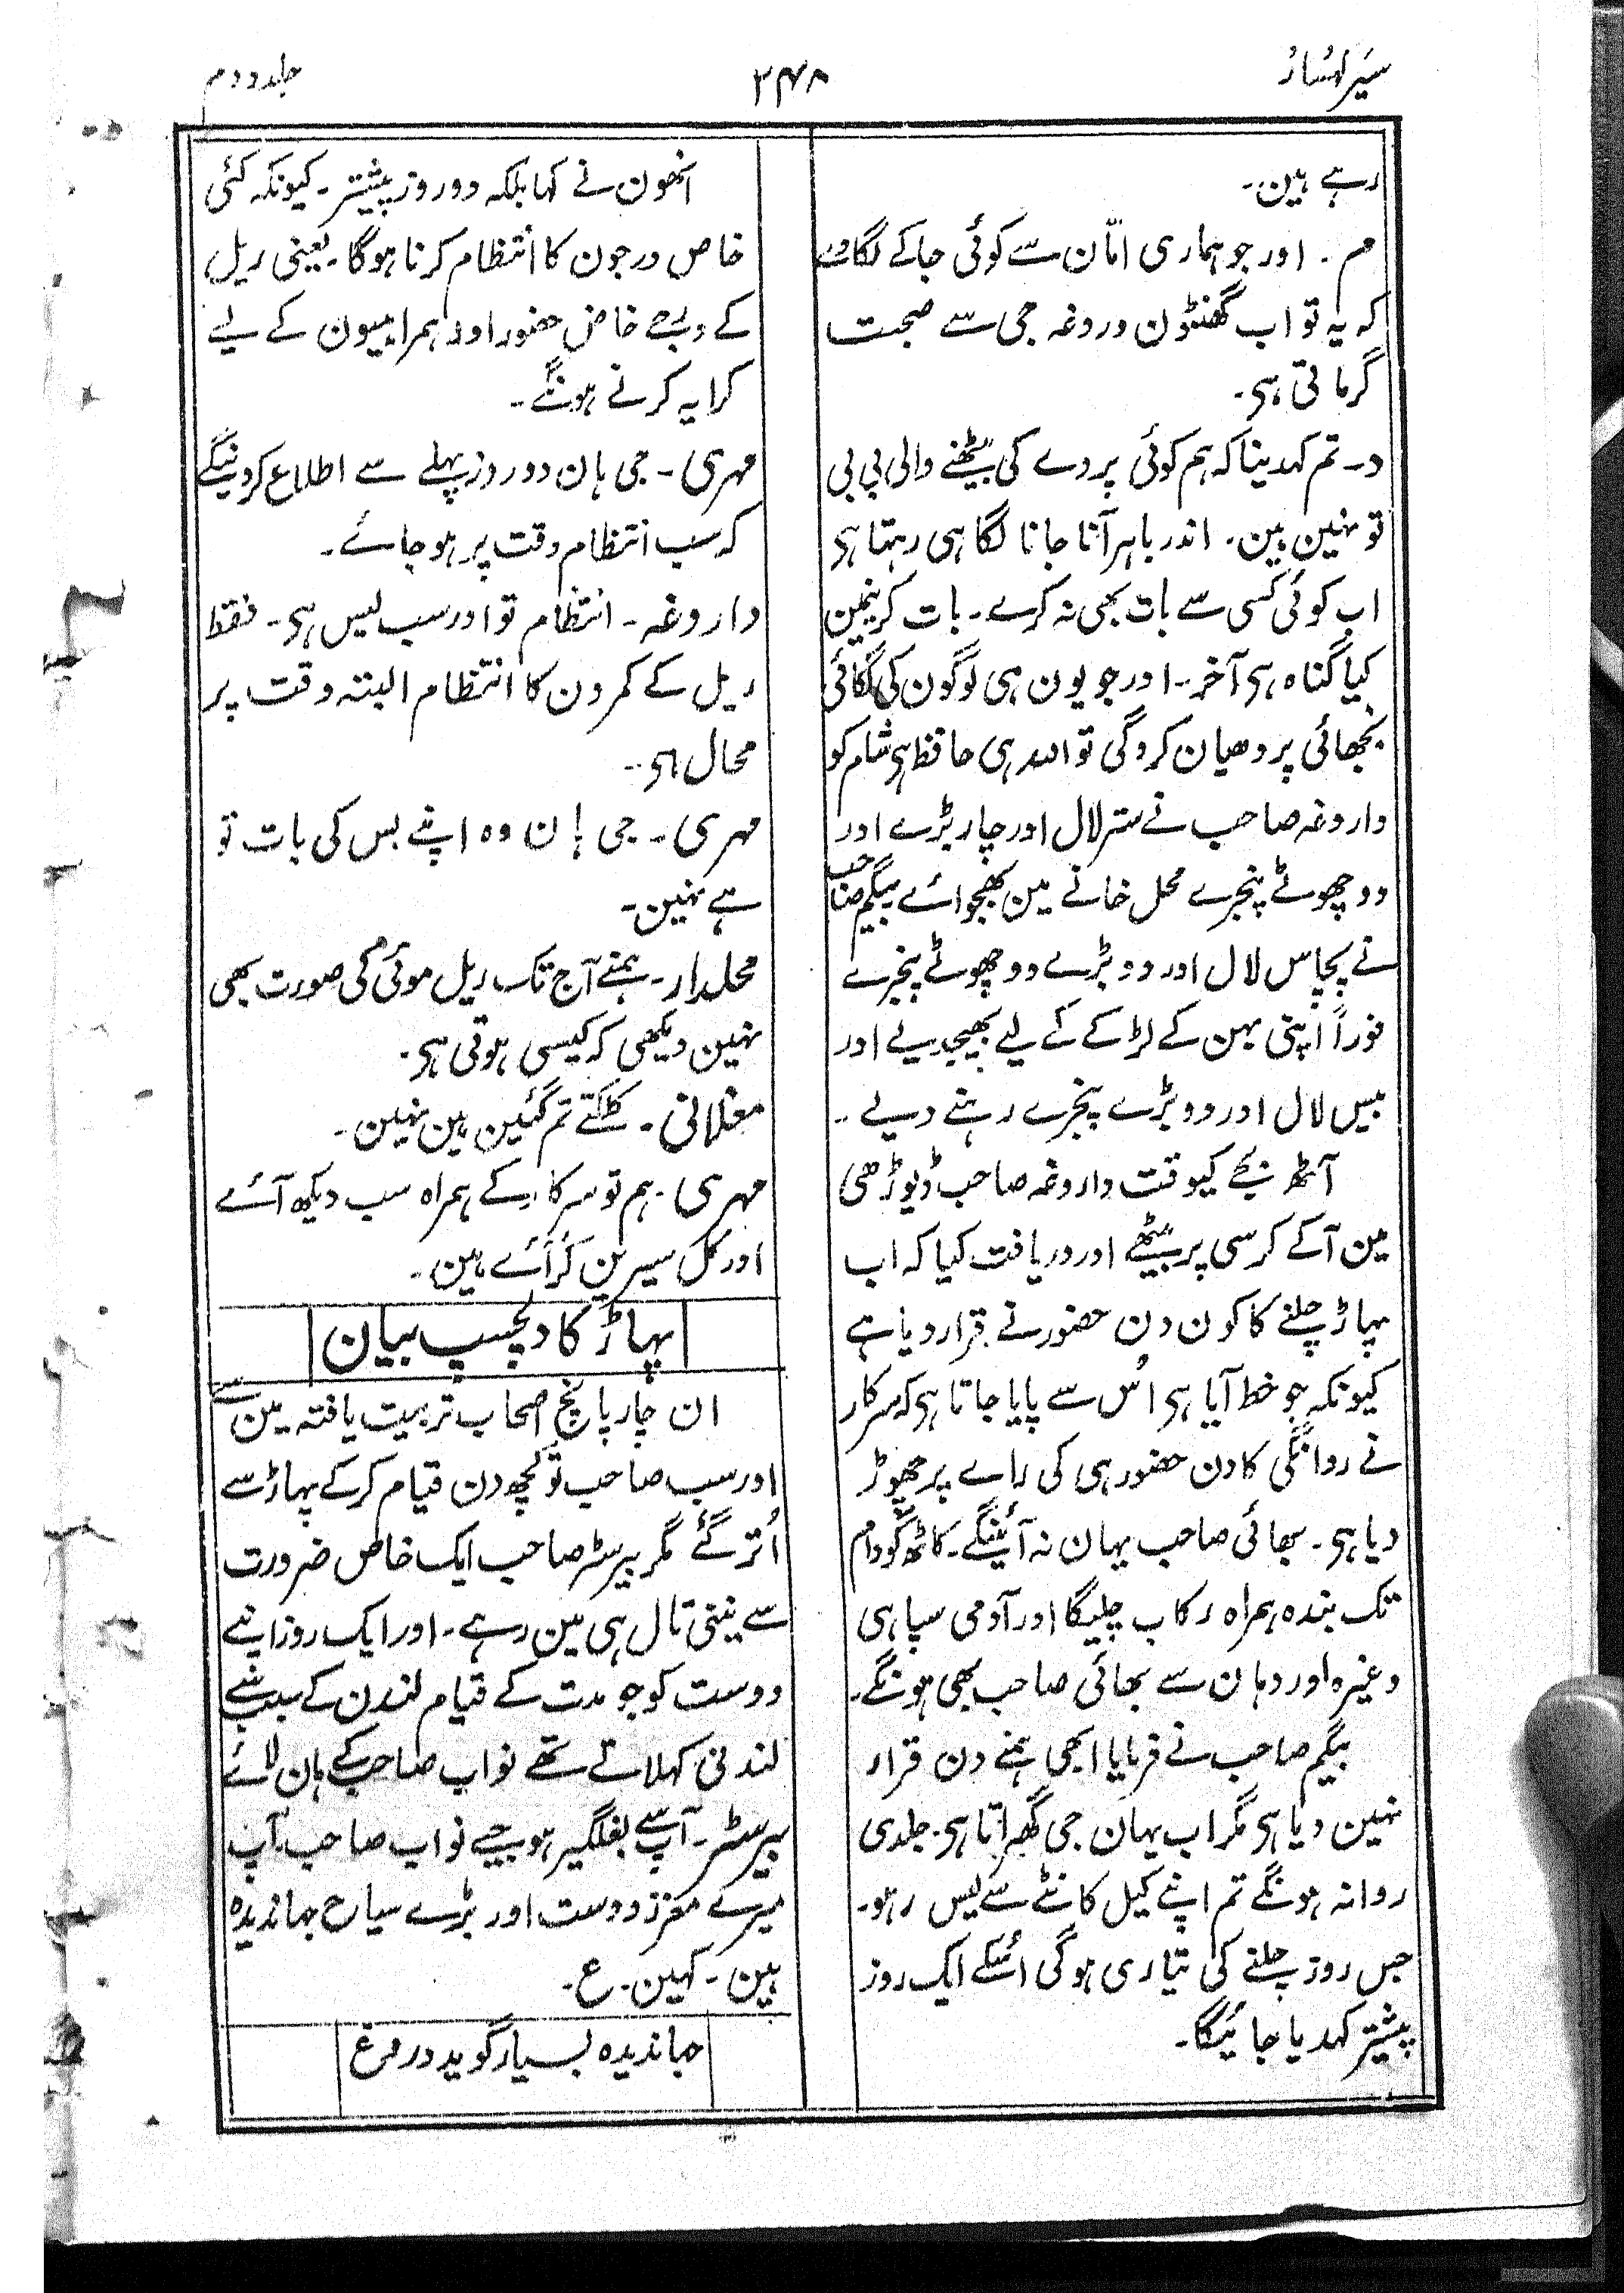 سیر کہسار
۳۴۸
جلد دوم
رہے ہین۔
م۔ اور جو ہماری امّان سے کوئی جاکے لگادے
کہ یہ تو اب گھنٹون دروغہ جی سے صحبت
گرماتی ہی۔
د۔ تم کہدینا کہ ہم کوئی پردے کی بیٹھنے والی بی بی
تو نہین ہین۔ اندر باہر آنا جانا لگا ہی رہتا ہی
اب کوئی کسی سے بات بھی نہ کرے۔ بات کرنیمین
کیا گناہ ہی آخر۔ اور جو یون ہی لوگون کی لگائی
بجھائی پر دھیان کروگی تو اللہ ہی حافظ ہی شام کو
داروغہ صاحب نے ستر لال اور چار بڑے اور
دو چھوٹے پنجرے محل خانے مین بھجوائے بیگم صاحب
نے پچاس لال اور دو بڑے دو چھوٹے پنجرے
فوراً اپنی بہن کے لڑکے کے لیے بھیجدیے اور
بیس لال اور دو بڑے پنجرے رہنے دیے۔
آٹھ بجے کیوقت داروغہ صاحب ڈیوڑھی
مین آکے کرسی پر بیٹھے اور دریافت کیا کہ اب
پہاڑ چلنے کا کون دن حضور نے قرار دیا ہے
کیونکہ جو خط آیا ہی اُس سے پایا جاتا ہی کہ سرکار
نے روانگی کا دن حضور ہی کی راے پر چھوڑ
دیا ہی۔ بھائی صاحب یہان نہ آئینگے۔ کاٹھ گودام
تک بندہ ہمراہ رکاب چلیگا اور آدمی سپاہی
وغیرہ اور وہان سے بھائی صاحب بھی ہونگے۔
بیگم صاحب نے فرمایا ابھی ہمنے دن قرار
نہین دیا ہی مگر اب یہان جی گھبراتا ہی۔ جلدی
روانہ ہونگے تم اپنے کیل کانٹے سے لیس رہو۔
جس روز چلنے کی تیاری ہوگی اُسکے ایک روز
پیشتر کہدیا جائیگا۔
انھون نے کہا بلکہ دو روز پیشتر۔ کیونکہ کئی
خاص درجون کا انتظام کرنا ہوگا۔ یعنی ریل
کے درجے خاص حضور اور ہمراہیون کے لیے
کرایہ کرنے ہونگے۔
مہری۔ جی ہان دو روز پہلے سے اطلاع کردینگے
کہ سب انتظام وقت پر ہو جائے۔
داروغہ۔ انتظام تو اور سب لیس ہی۔ فقط
ریل کے کمرون کا انتظام البتہ وقت پر
محال ہی۔
مہری۔ جی ہان وہ اپنے بس کی بات تو
ہے نہین۔
محلدار۔ ہمنے آج تک ریل موئی کی صورت بھی
نہین دیکھی کہ کیسی ہوتی ہی۔
مغلانی۔ کلکتے تم گئین ہین نہین۔
مہری۔ ہم تو سرکار کے ہمراہ سب دیکھ آئے
اور کل سیرین کر آئے ہین۔
پہاڑ کا دلچسپ بیان
ان چار پانچ اصحاب تربیت یافتہ مین سے
اور سب صاحب تو کچھ دن قیام کرکے پہاڑ سے
اُتر گئے مگر بیرسٹر صاحب ایک خاص ضرورت
سے نینی تال ہی مین رہے۔ اور ایک روز اپنے
دوست کو جو مدت کے قیام لندن کے سبب سے
لندنی کہلاتے تھے نواب صاحب کے ہان لائے
بیرسٹر۔ آپ سے بغلگیر ہوجیے نواب صاحب۔ آپ
میرے معزز دوست اور بڑے سیاح جہاندیدہ
ہین۔ کہین۔ ع۔
جہاندیدہ بسیار گوید دروغ